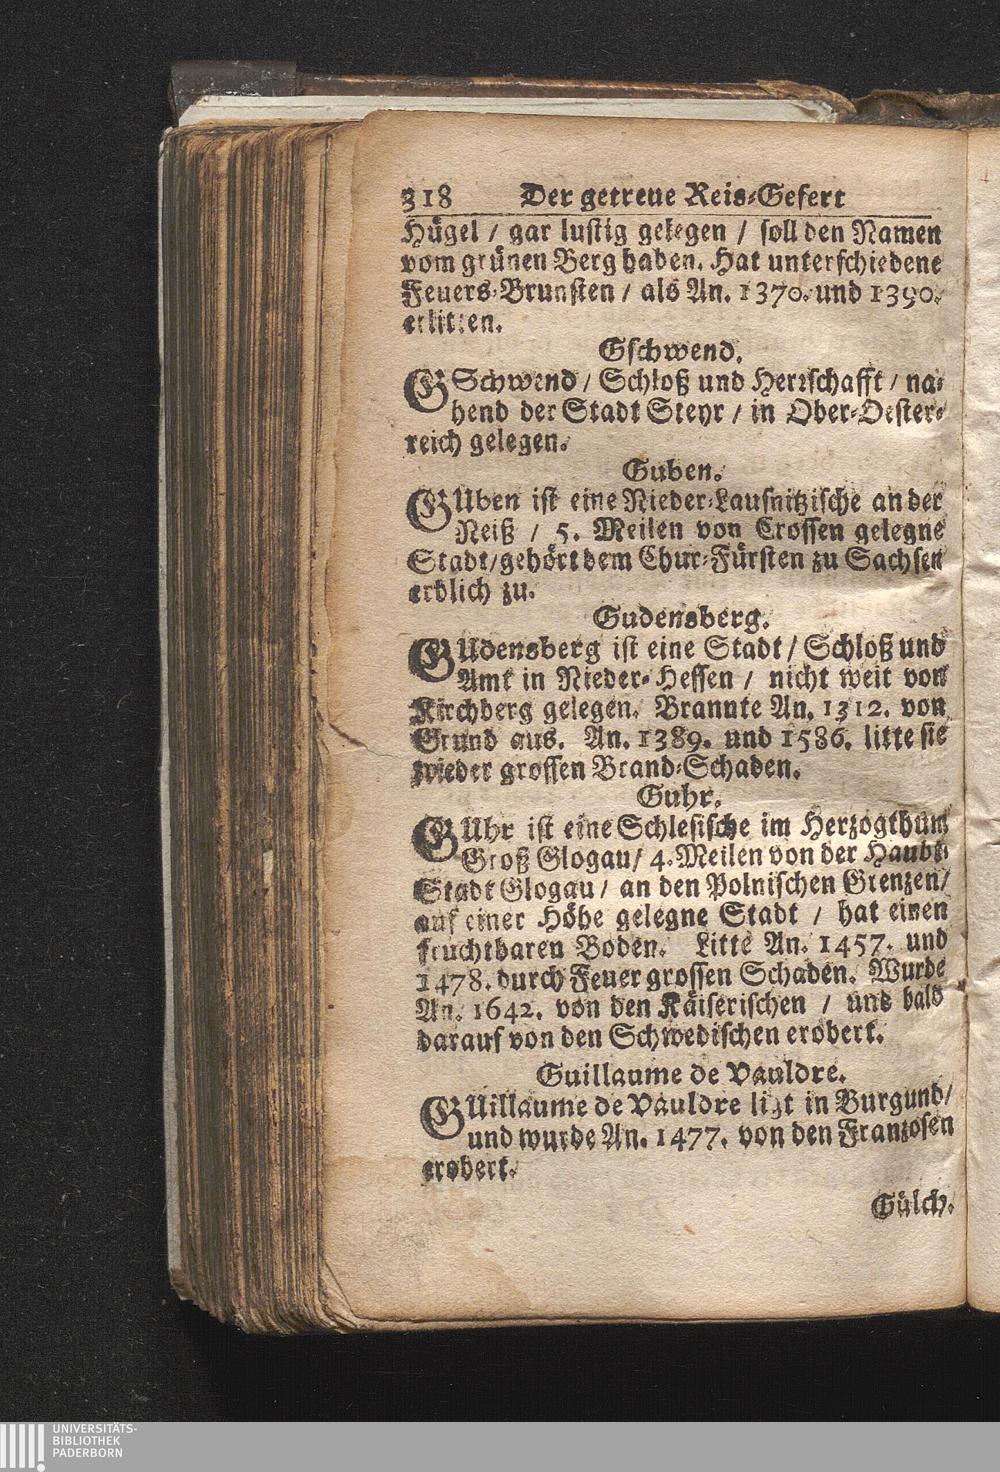 318 Der getreue Reis-Gefert
Hügel / gar lustig gelegen / soll den Namen
vom grünen Berg haben. Hat unterschiedene
Feuers-Brunsten / als An. 1370. und 1390.
erlitten.
Gschwend.
GSchwend / Schloß und Herrschafft / na-
hend der Stadt Steyr / in Ober-Oester-
reich gelegen.
Guben.
GUben ist eine Nieder-Lausnitzische an der
Neiß / 5. Meilen von Crossen gelegne
Stadt/gehört dem Chur-Fürsten zu Sachsen
erblich zu.
Gudensberg.
GUdensberg ist eine Stadt / Schloß und
Amt in Nieder-Hessen / nicht weit von
Kirchberg gelegen. Brannte An. 1312. von
Grund aus. An. 1389. und 1586. litte sie
wieder grossen Brand-Schaden.
Guhr.
GUhr ist eine Schlesische im Herzogthum
Groß Glogau/ 4. Meilen von der Haubt-
Stadt Glogau / an den Polnischen Grenzen/
auf einer Höhe gelegne Stadt / hat einen
fruchtbaren Boden. Litte An. 1457. und
1478. durch Feuer grossen Schaden. Wurde
An. 1642. von den Käiserischen / und bald
darauf von den Schwedischen erobert.
Guillaume de Vauldre.
GUillaume de Vauldre ligt in Burgund/
und wurde An. 1477. von den Franzosen
erobert.
Gülch.
UNIVERSITÄTS-
BIBLIOTHEK
PADERBORN